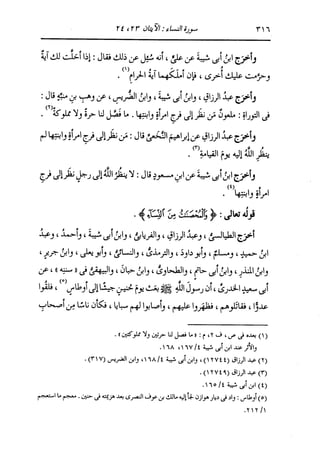 ٣١٦ سورة النساء : الآيتان ٢٣ ، ٢٤
وأخرج ابنُ أبي شيبةَ عن عليٍّ ، أنه سُئِل عن ذلك فقال : إذا أحلَّت لك آيةٌ
وحرَّمت عليك أُخرى ، فإن أملكَهما آيةُ الحرامِ(١) .
وأخرَج عبدُ الرزاقِ ، وابنُ أبي شيبةَ ، وابنُ الضُّريسِ ، عن وهبِ بنِ منبِّهٍ قال :
في التوراةِ : ملعونٌ مَن نظَر إلى فرجِ امرأةٍ وابنتِها . ما فصَّل لنا حرةً ولا مملوكةً(٢) .
وأخرَج عبدُ الرزاقِ عن إبراهيمَ النَّخَعيِّ قال : مَن نظَر إلى فرجِ امرأةٍ وابنتِها لم
ينظُرِ اللَّهُ إليه يومَ القيامةِ(٣) .
وأخرَج ابنُ أبي شيبةَ عن ابنِ مسعودٍ قال : لا ينظُرُ اللَّهُ إلى رجلٍ نظَر إلى فرجِ
امرأةٍ وابنتِها(٤) .
قولُه تعالى : ﴿ وَالْمُحْصَنَاتُ مِنَ النِّسَاءِ ﴾ .
أخرَج الطيالسيُّ ، وعبدُ الرزاقِ ، والفريابيُّ ، وابنُ أبي شيبةَ ، وأحمدُ ، وعبدُ
ابنُ حميدٍ ، ومسلمٌ ، وأبو داودَ ، والترمذيُّ ، والنسائيُّ ، وأبو يعلى ، وابنُ جريرٍ ،
وابنُ المنذرِ ، وابنُ أبي حاتمٍ ، والطحاويُّ ، وابنُ حبانَ ، والبيهقيُّ في « سننِه » ، عن
أبي سعيدٍ الخدريِّ ، أن رسولَ اللَّهِ ﷺ بعَث يومَ حُنينٍ جيشًا إلى أوطاسٍ(٥) ، فلَقُوا
عدوًّا ، فقاتَلوهم ، فظهَروا عليهم ، وأصابوا لهم سبايا ، فكأن ناسًا من أصحابِ
(١) بعده في ص ، ف ٢ ، م : « ما فصل لنا حرتين ولا مملوكتين » .
والأثر عند ابن أبي شيبة ٤/ ١٦٧، ١٦٨.
(٢) عبد الرزاق (١٢٧٤٤) ، وابن أبي شيبة ٤/ ١٦٨، وابن الضريس (٣١٧) .
(٣) عبد الرزاق (١٢٧٤٩) .
(٤) ابن أبي شيبة ٤/ ١٦٥.
(٥) أوطاس : واد في ديار هوازن لجأ إليه مالك بن عوف النصري بعد هزيمته في حنين . معجم ما استعجم
١/ ٢١٢.